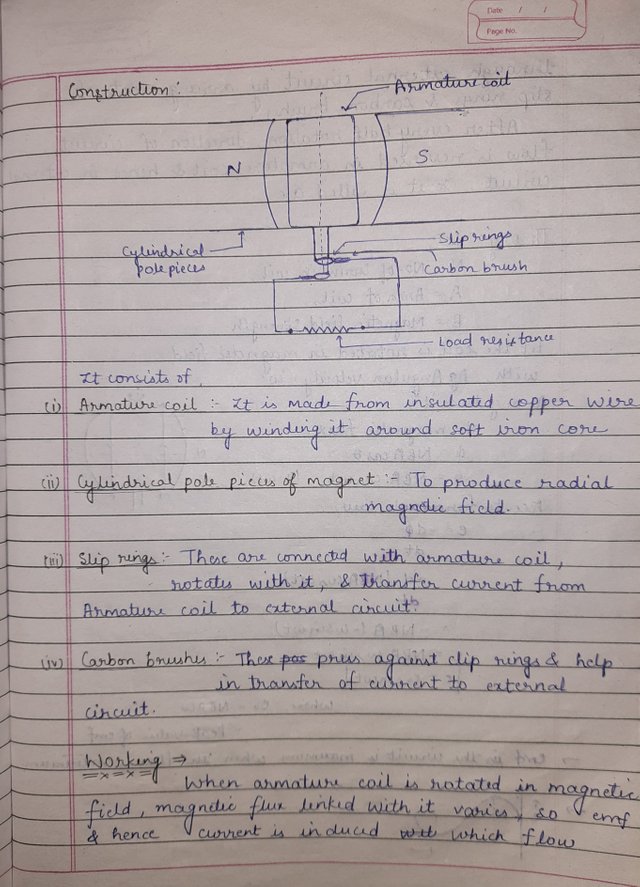 Date / /
Page No.
Construction :
Armature coil
N
S
Cylindrical
pole pieces
Slip rings
Carbon brush
Load resistance
It consists of,
(i) Armature coil :- It is made from insulated copper wire
by winding it around soft iron core
(ii) Cylindrical pole pieces of magnet :- To produce radial
magnetic field.
(iii) Slip rings :- These are connected with armature coil,
rotates with it, & transfer current from
Armature coil to external circuit.
(iv) Carbon brushes :- These pos press against clip rings & help
in transfer of current to external
circuit.
Working ⇒
When armature coil is rotated in magnetic
field, magnetic flux linked with it varies, so emf
& hence current is induced which flow